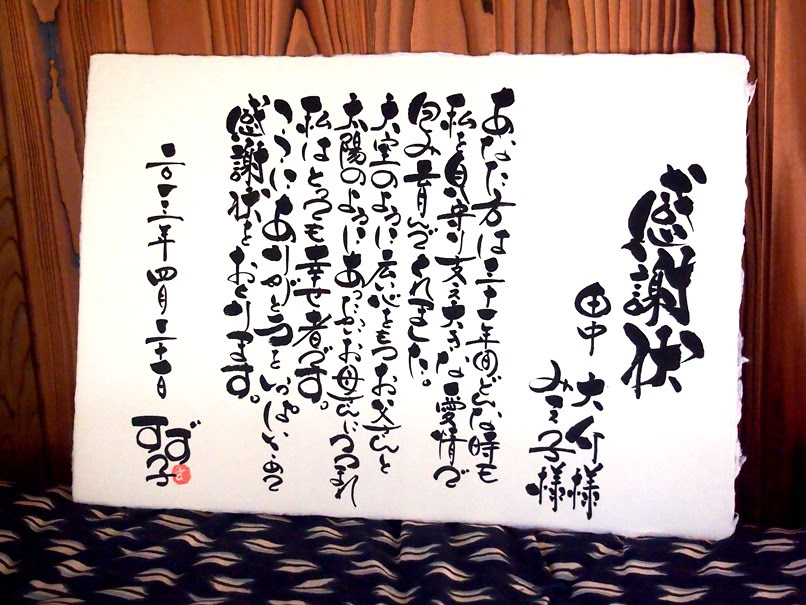 感謝状
田中 大介様
みえ子様
あなた方は三十年間どんな時も
私を見守り支え大きな愛情で
包み育んでくれました。
大空のように広い心をもつお父さんと
太陽のようにあったかいお母さんにつつまれ
私はとっても幸せ者です。
ここにありがとうをいっぱいこめて
感謝状をおくります。
二〇一二年四月二十一日
すず子